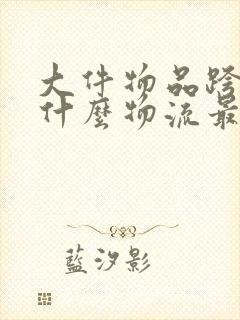 大件物品跨
什麼物流最
藍汐影